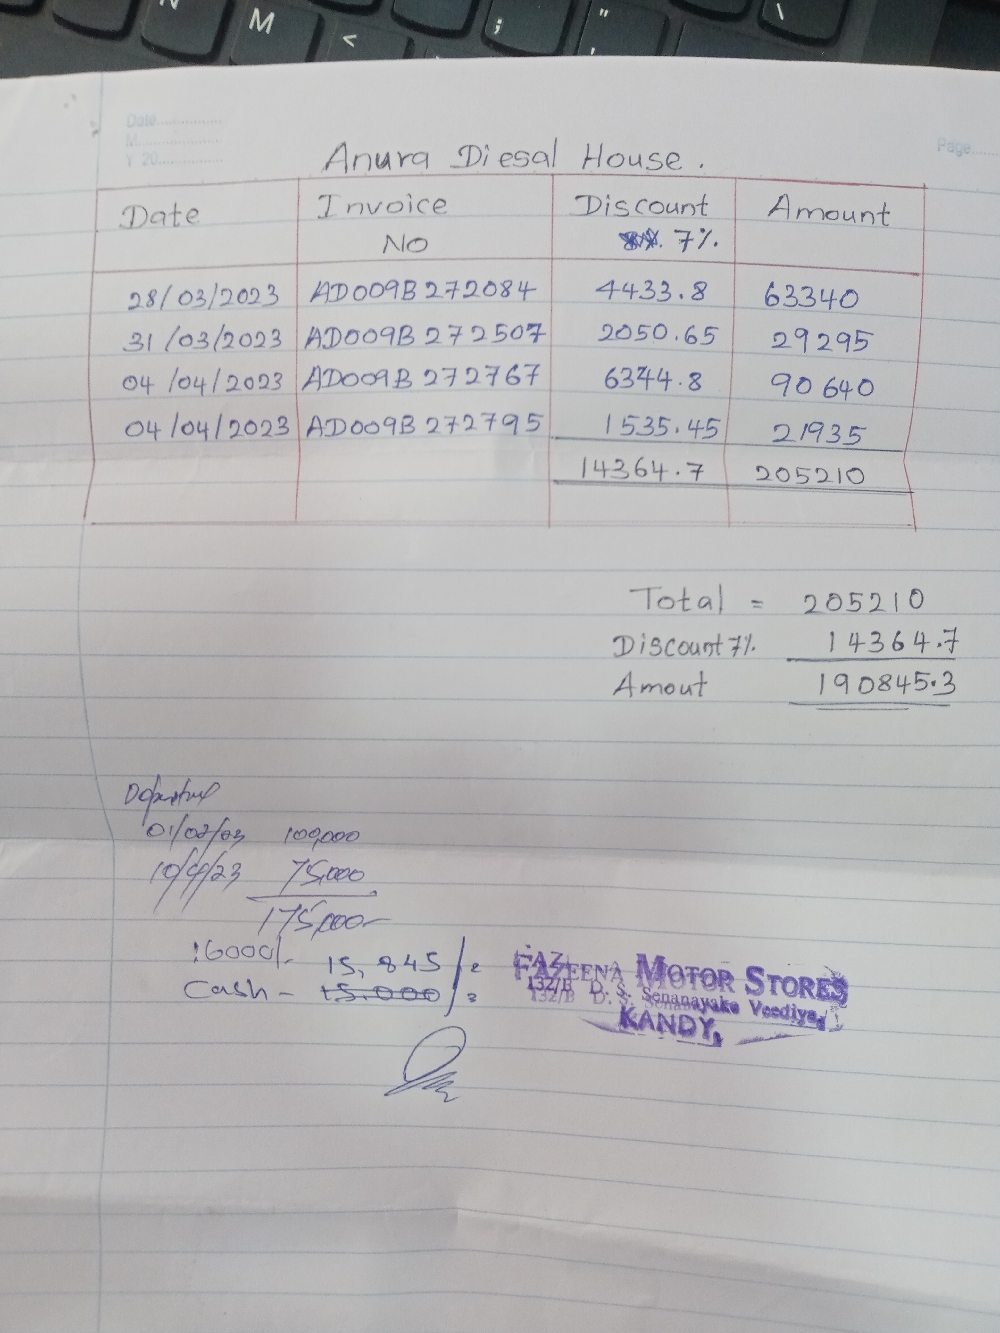 N M < ; : " , \
Date...............
M...............
Y 20...............
Page......
Anura Diesal House.
Date Invoice No Discount 7%. Amount
28/03/2023 AD009B272084 4433.8 63340
31/03/2023 AD009B272507 2050.65 29295
04/04/2023 AD009B272767 6344.8 90640
04/04/2023 AD009B272795 1535.45 21935
14364.7 205210
Total = 205210
Discount 7%. 14364.7
Amout 190845.3
100,000
10/4/23 75,000
175,000
16000/-
15,845/=
Cash - 15.000/=
FAZEENA MOTOR STORES
132/B D. S. Senanayake Veediya,
KANDY.